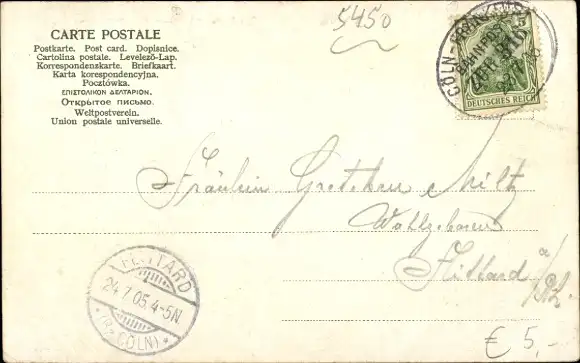 5450
CARTE POSTALE
Postkarte. Post card. Dopisnice.
Cartolina postale. Levelező-Lap.
Korrespondenzkarte. Briefkaart.
Karta korespondencyjna.
Pocztówka.
ΕΠΙΣΤΟΛΙΚΟΝ ΔΕΛΤΑΡΙΟΝ.
Открытое письмо.
Weltpostverein.
Union postale universelle.
CÖLN-
5
DEUTSCHES REICH
Fräulein Gretchen Miltz
Wohlgeboren
Flittard a/Rh.
FLITTARD
24.7.05.4-5N.
*(R-CÖLN)*
€ 5,-